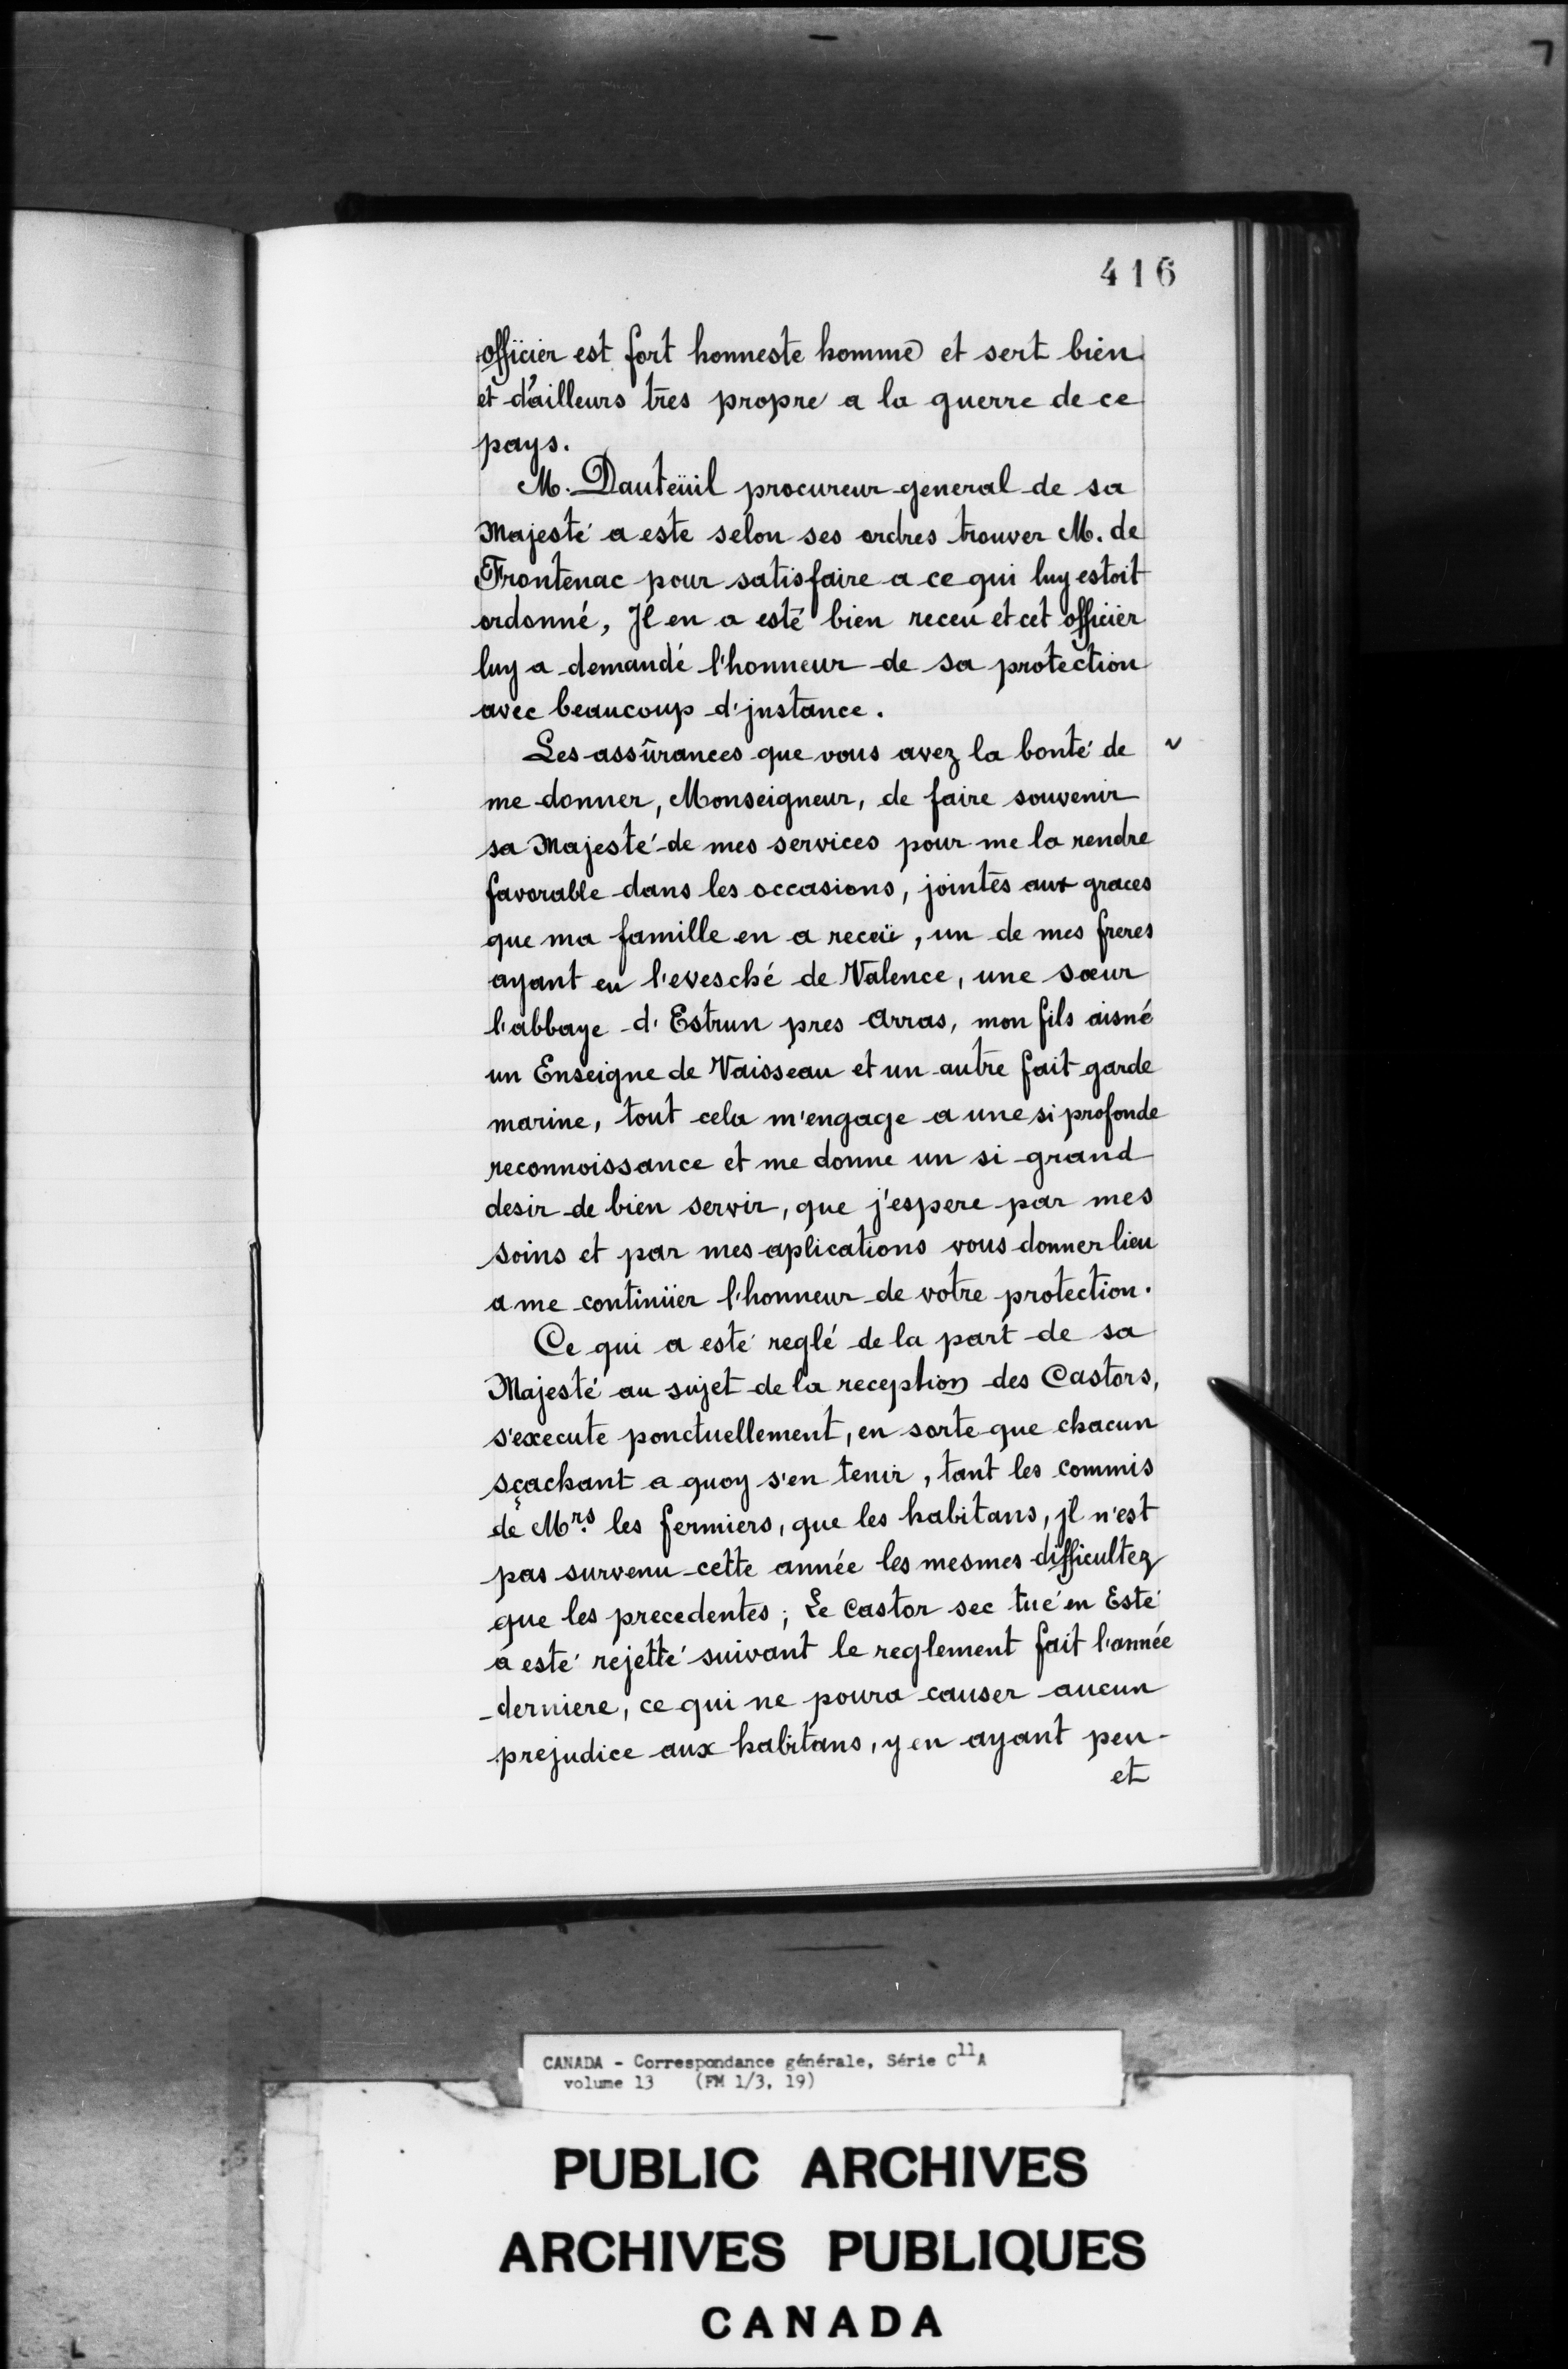 416
officier est fort honneste homme et sert bien
et d'ailleurs tres propre a la guerre de ce
pays.
M. Dauteüil procureur general de sa
Majesté a este selon ses ordres trouver M. de
Frontenac pour satisfaire a ce qui luy estoit
ordonné, Jl en a esté bien receu et cet officier
luy a demandé l'honneur de sa protection
avec beaucoup d'jnstance.
Les assûrances que vous avez la bonté de
me donner, Monseigneur, de faire souvenir
sa Majesté de mes services pour me la rendre
favorable dans les occasions, jointes aux graces
que ma famille en a receü, un de mes freres
ayant eu l'evesché de Valence, une sœur
l'abbaye d'Estrun pres Arras, mon fils aisné
un Enseigne de Vaisseau et un autre fait garde
marine, tout cela m'engage a une si profonde
reconnoissance et me donne un si grand
desir de bien servir, que j'espere par mes
soins et par mes aplications vous donner lieu
a me continüer l'honneur de votre protection.
Ce qui a esté reglé de la part de sa
Majesté au sujet de la reception des Castors,
s'execute ponctuellement, en sorte que chacun
sçachant a quoy s'en tenir, tant les commis
de Mrs. les fermiers, que les habitans, jl n'est
pas survenu cette année les mesmes difficultez
que les precedentes; Le Castor sec tué en Esté
a esté rejetté suivant le reglement fait l'année
derniere, ce qui ne poura causer aucun
prejudice aux habitans, y en ayant peu
et
CANADA - Correspondance générale, Série C11A
volume 13 (FM 1/3, 19)
PUBLIC ARCHIVES
ARCHIVES PUBLIQUES
CANADA